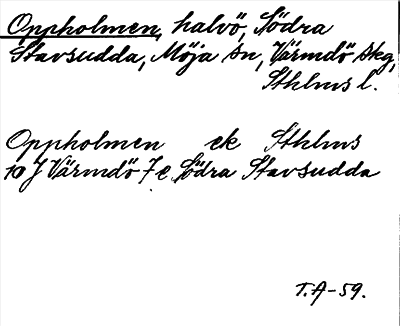 Oppholmen, halvö, Södra
Stavsudda, Möja sn, Värmdö skg,
Sthlms l.
Oppholmen ek Sthlms
10 J Värmdö 7 e Södra Stavsudda
T.A-59.